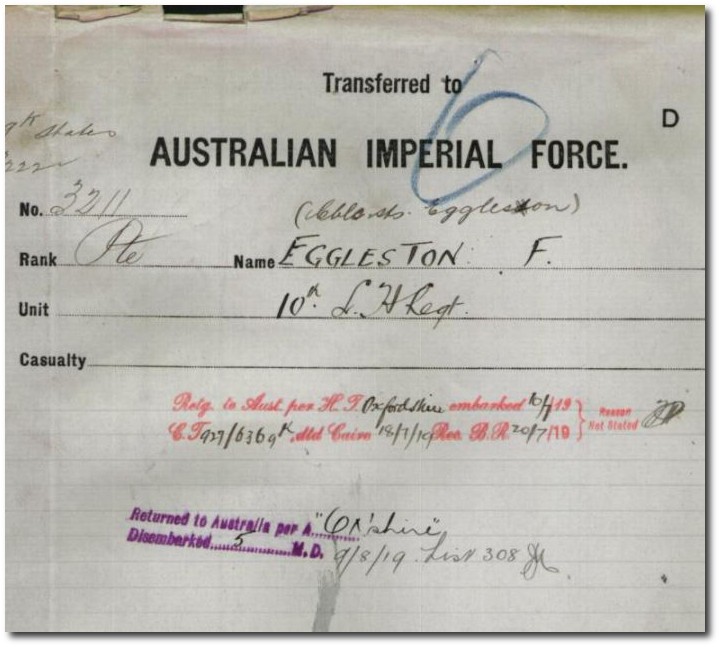 Transferred to
6
D
AUSTRALIAN IMPERIAL FORCE.
No. 3211
Eggleston)
Rank Pte Name EGGLESTON F.
Unit 10th L. H Regt.
Casualty
Retg. to Aust. per H.T. Oxfordshire embarked 10/7/19 } Reason Not Stated
C.T. 927/6369K dtd Cairo 18/7/19 Rec. B.R. 20/7/19
Returned to Australia per A. "Ox'shire"
Disembarked 5 M.D. 9/8/19. List 308